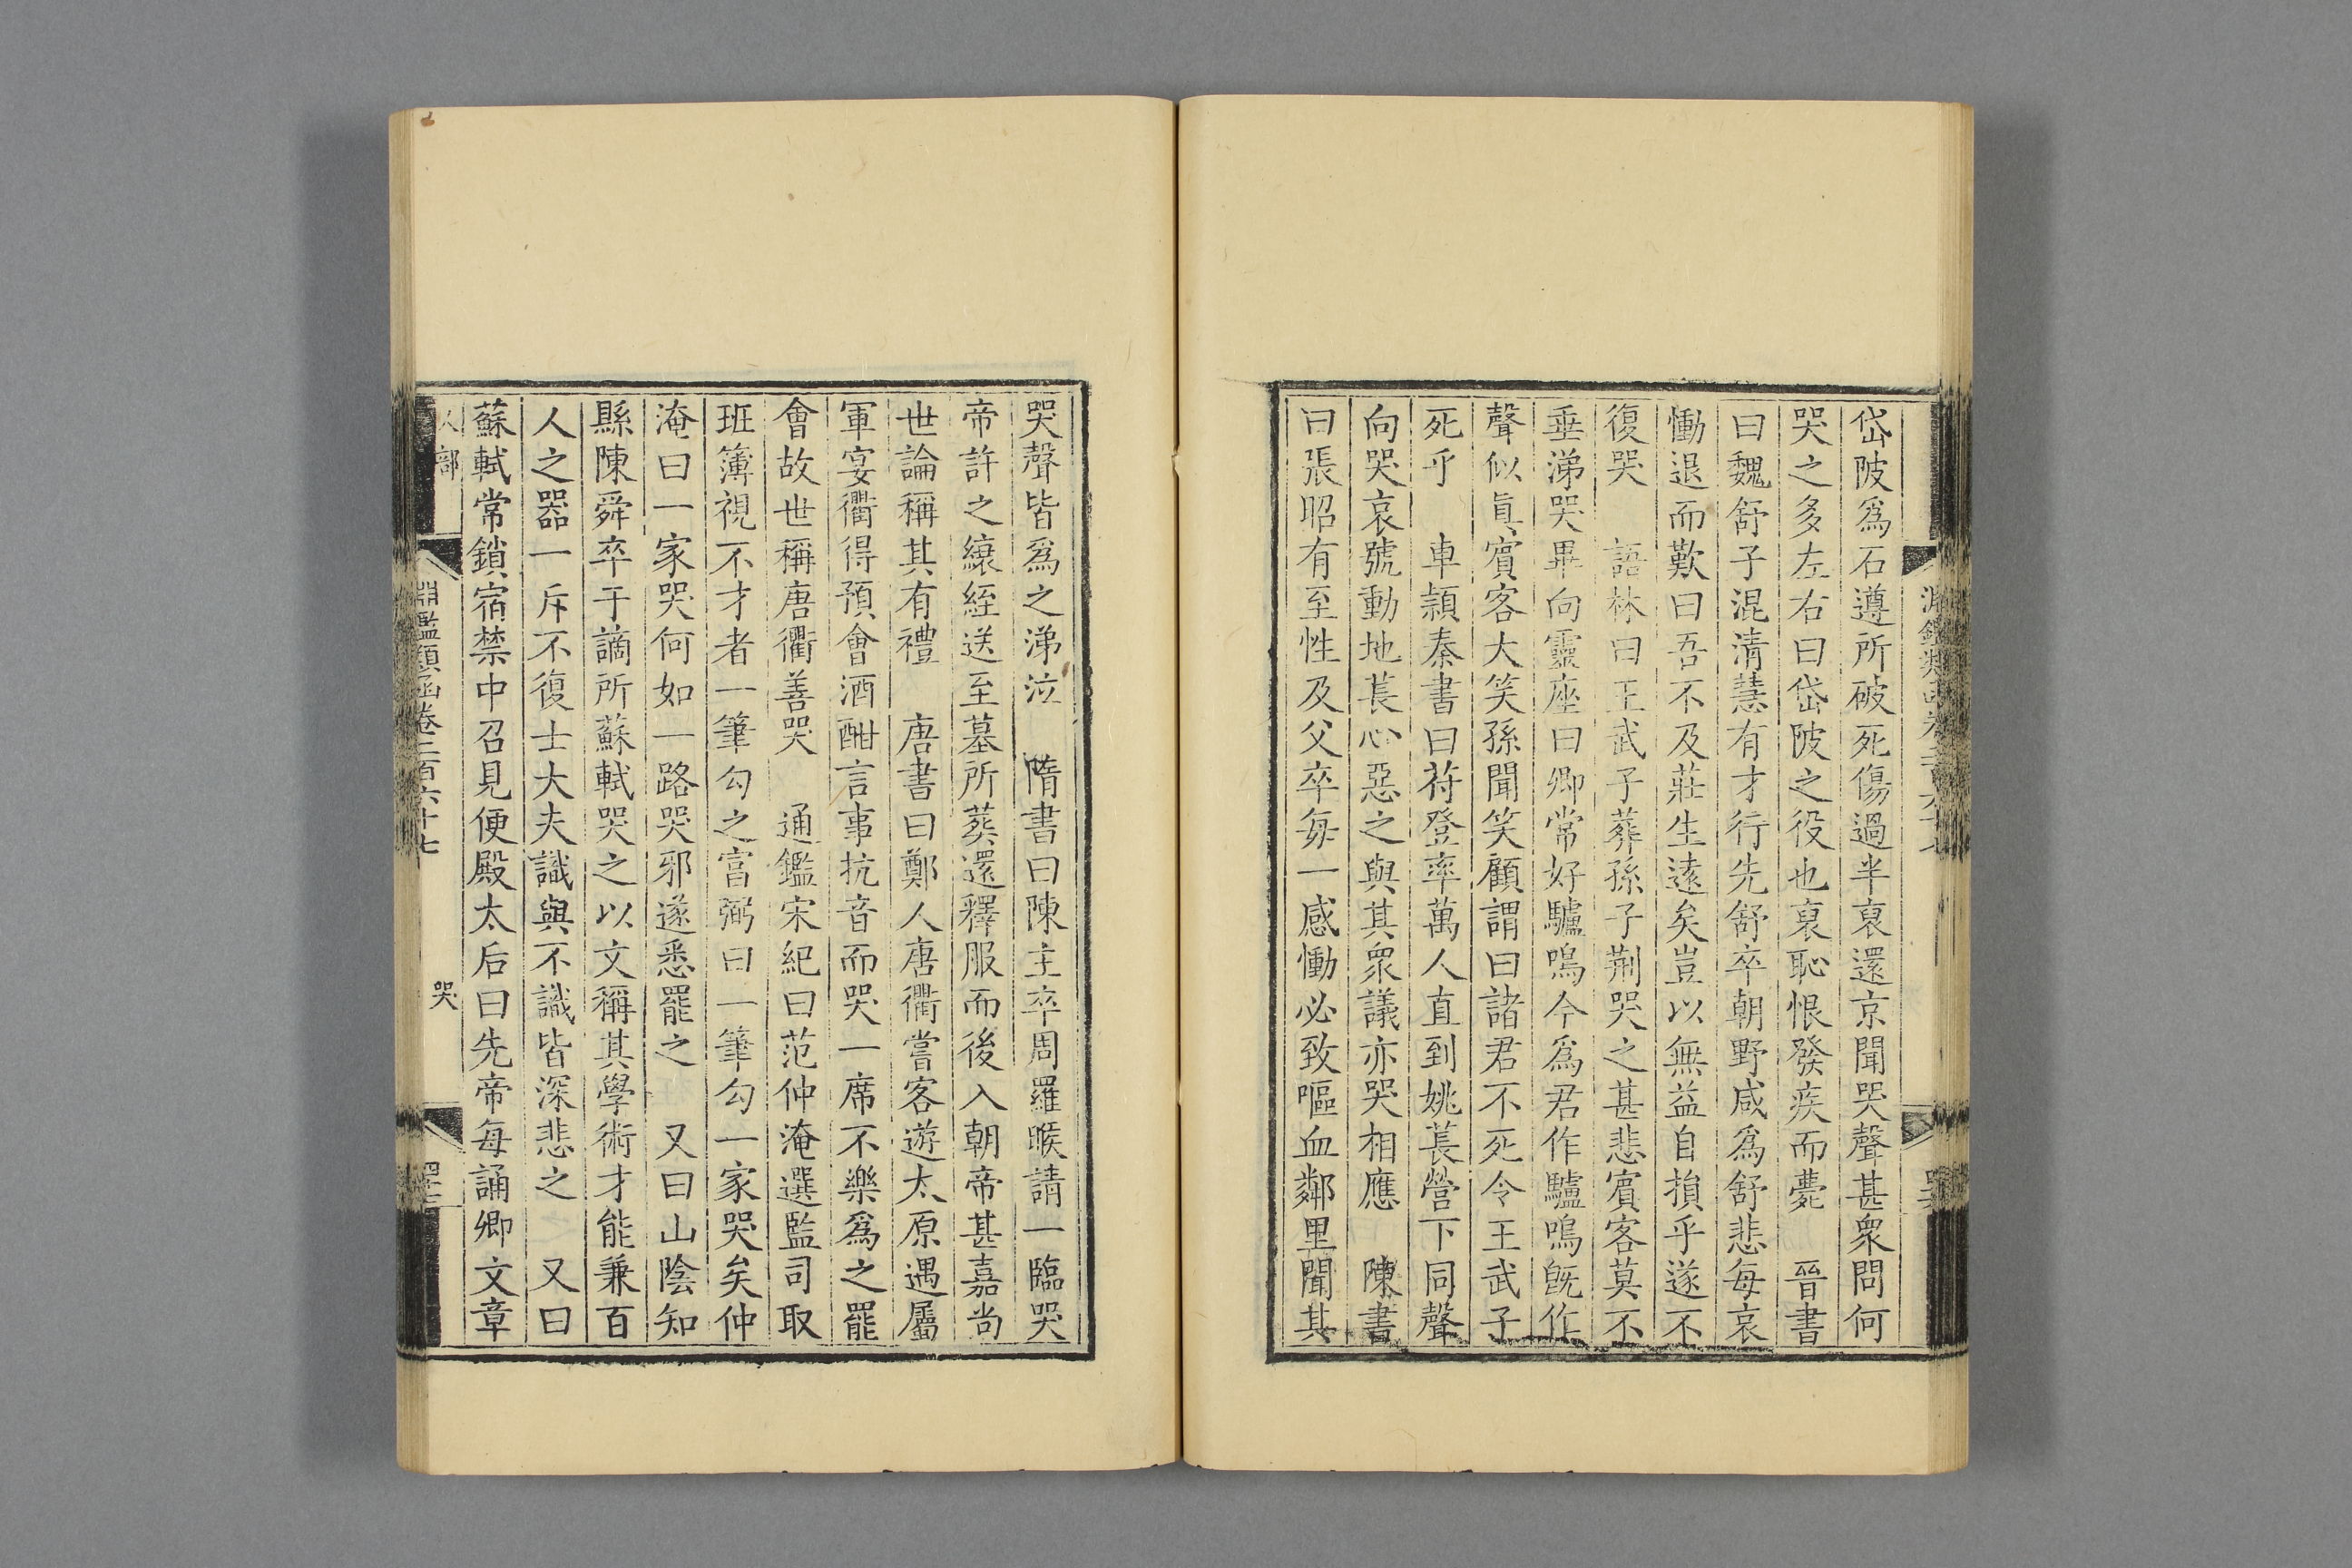 岱陂爲石遵所破死傷過半裒還京聞哭聲甚衆問何
哭之多左右曰岱陂之役也裒恥恨發疾而薨　晉書
曰魏舒子混清慧有才行先舒卒朝野咸爲舒悲每哀
慟退而歎曰吾不及莊生遠矣豈以無益自損乎遂不
復哭　語林曰王武子葬孫子荆哭之甚悲賓客莫不
垂涕哭畢向靈座曰卿常好驢鳴今爲君作驢鳴旣作
聲似眞賓客大笑孫聞笑顧謂曰諸君不死令王武子
死乎　車頴秦書曰苻登率萬人直到姚萇營下同聲
向哭哀號動地萇心惡之與其衆議亦哭相應　陳書
曰張昭有至性及父卒每一感慟必致嘔血鄰里聞其
哭聲皆爲之涕泣　隋書曰陳主卒周羅睺請一臨哭
帝許之縗絰送至墓所葬還釋服而後入朝帝甚嘉尚
世論稱其有禮　唐書曰鄭人唐衢嘗客遊太原遇屬
軍宴衢得預會酒酣言事抗音而哭一席不樂爲之罷
會故世稱唐衢善哭　通鑑宋紀曰范仲淹選監司取
班簿視不才者一筆勾之富弼曰一筆勾一家哭矣仲
淹曰一家哭何如一路哭邪遂悉罷之　又曰山陰知
縣陳舜卒于謫所蘇軾哭之以文稱其學術才能兼百
人之器一斥不復士大夫識與不識皆深悲之　又曰
蘇軾常鎖宿禁中召見便殿太后曰先帝每誦卿文章
人部
淵鑑類函卷二百六十七
哭